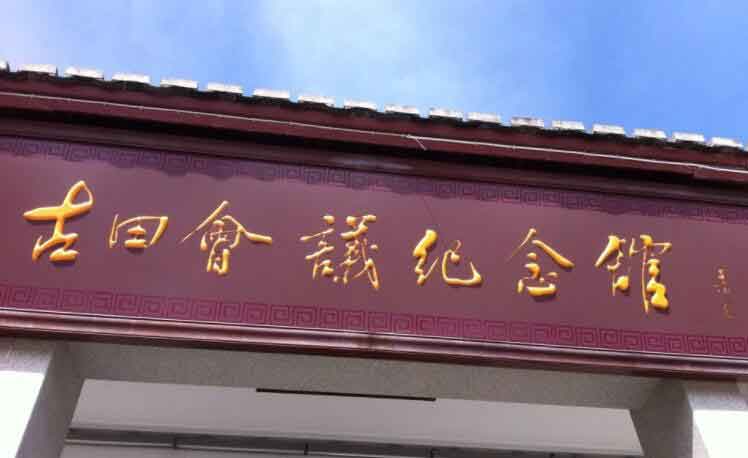 古田會議紀念館